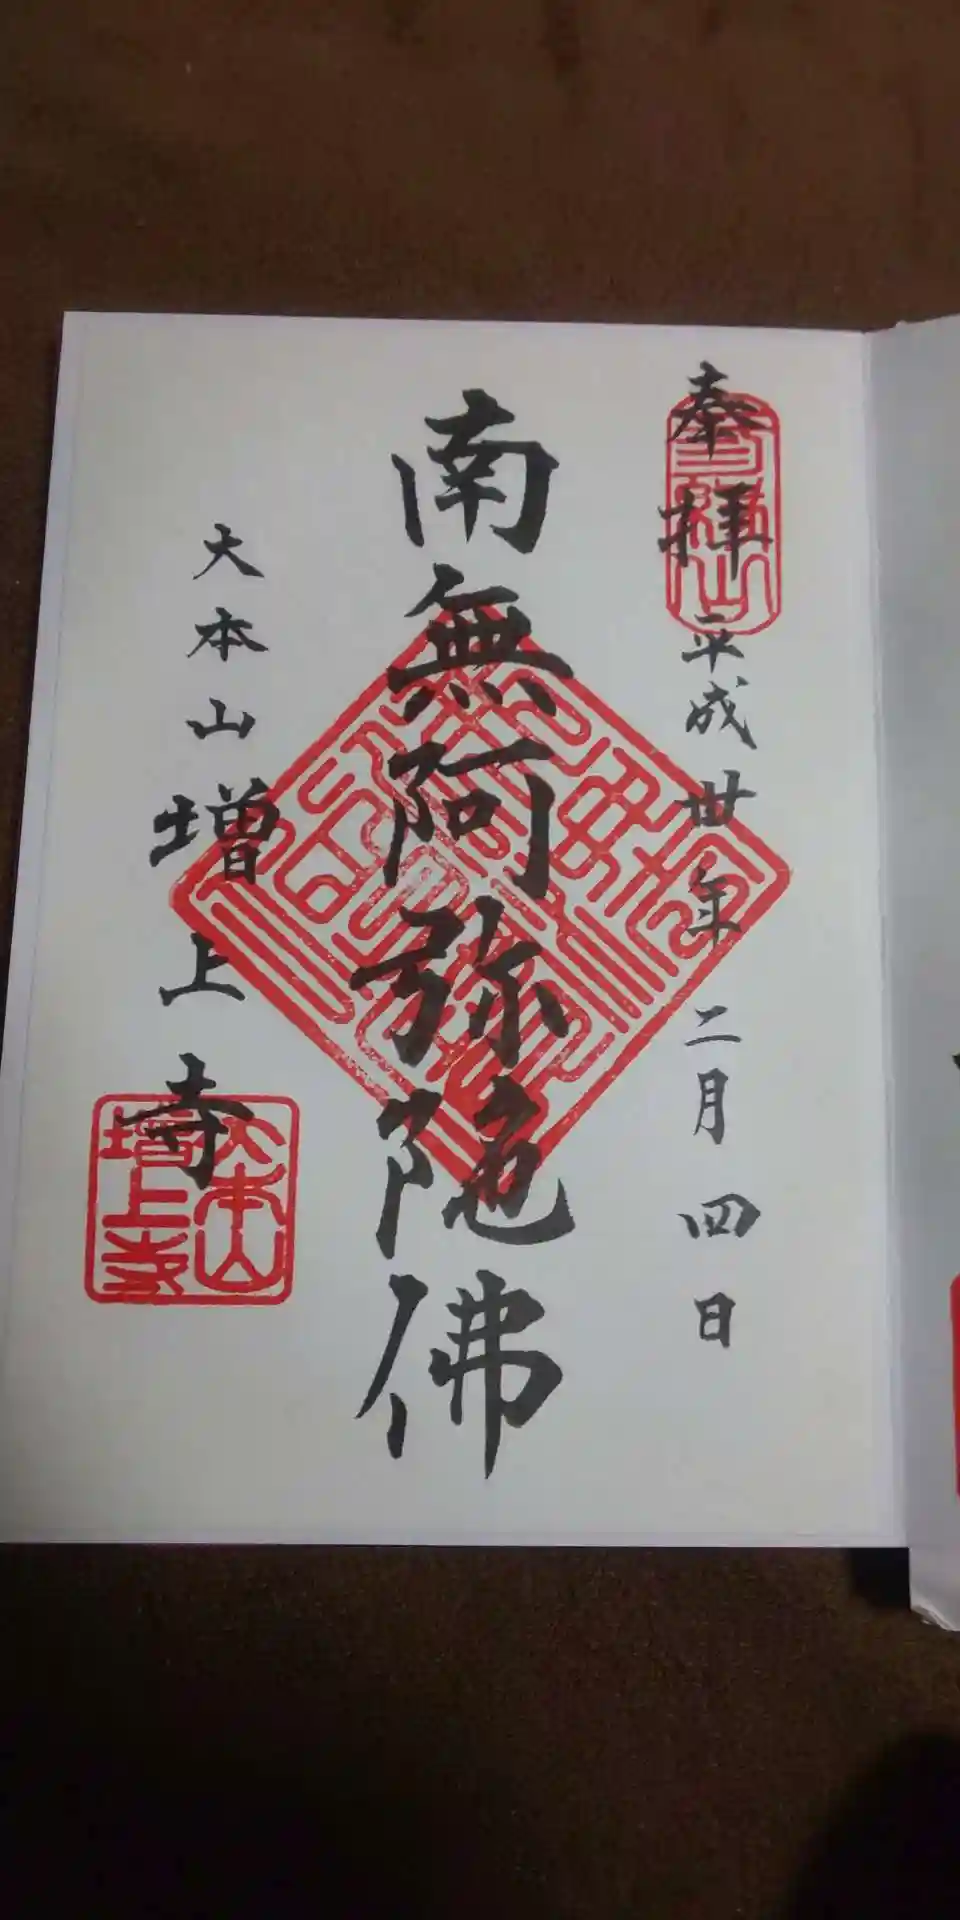 奉拝 平成卅年 二月 四日
南無阿弥陀佛
大本山増上寺
大本山
増上寺